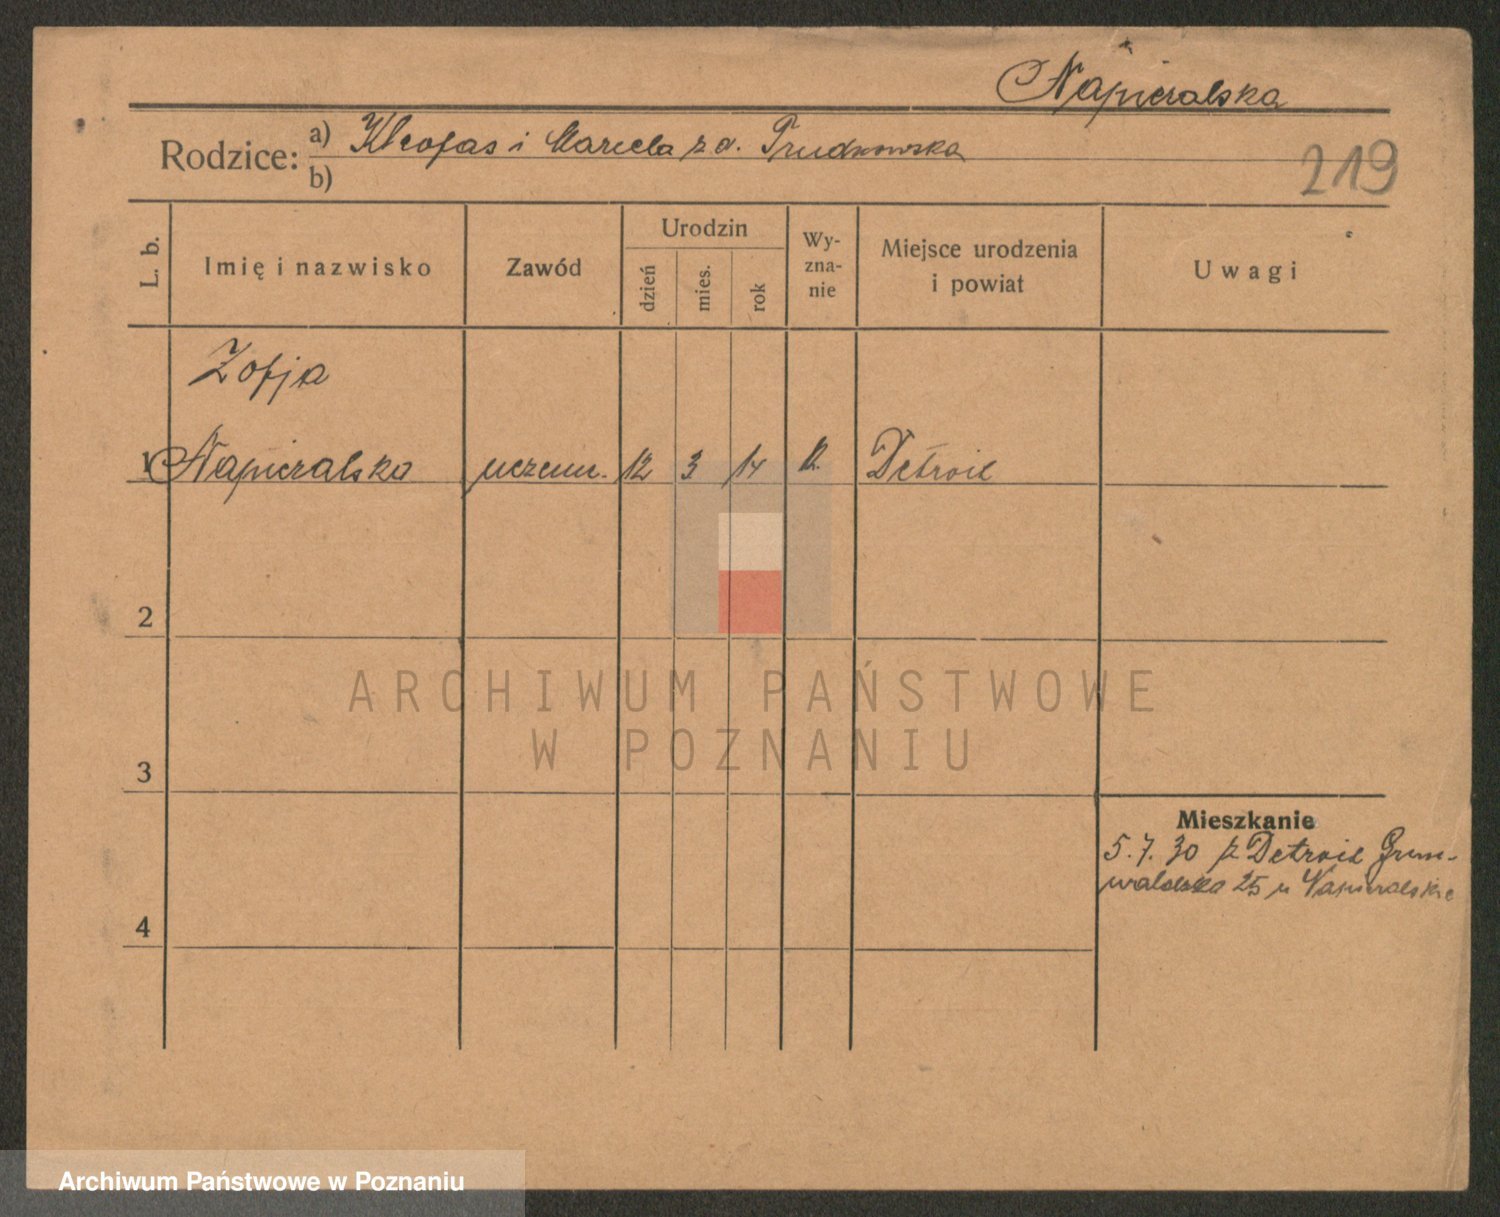 Napieralska
Rodzice: a) Kleofas i Marcela z d. Prudnowska
b)
219
L. b.
Imię i nazwisko
Zawód
Urodzin
dzień
mies.
rok
Wy-
zna-
nie
Miejsce urodzenia
i powiat
Uwagi
Zofja
1 Napieralska uczenn. 12 3 14 k. Detroit
2
3
4
Mieszkanie
5.7.30 z Detroit Grun-
waldzka 25 u Napieralskie
ARCHIWUM PAŃSTWOWE
W POZNANIU
Archiwum Państwowe w Poznaniu